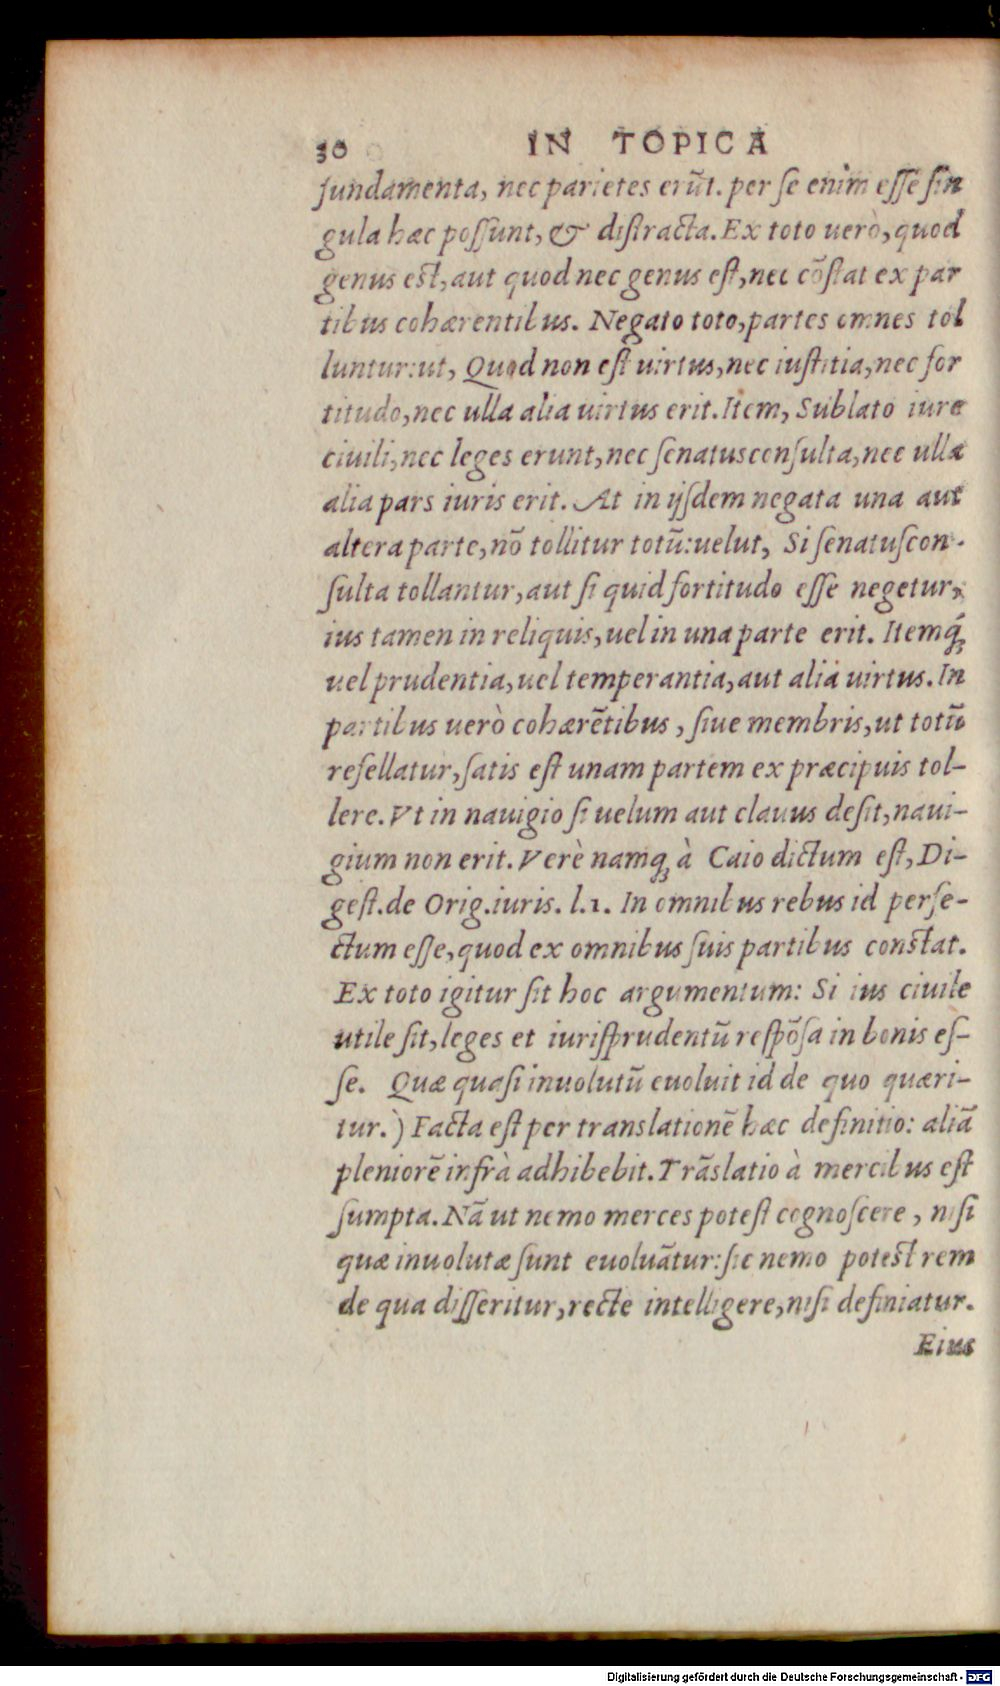 30 IN TOPICA
fundamenta, nec parietes erūt. per se enim esse sin
gula hæc possunt, & distracta. Ex toto uerò, quod
genus est, aut quod nec genus est, nec cōstat ex par
tibus cohærentibus. Negato toto, partes omnes tol
luntur: ut, Quod non est uirtus, nec iustitia, nec for
titudo, nec ulla alia uirtus erit. Item, Sublato iure
ciuili, nec leges erunt, nec senatusconsulta, nec ulla
alia pars iuris erit. At in ijsdem negata una aut
altera parte, nō tollitur totū: uelut, Si senatuscon-
sulta tollantur, aut si quid fortitudo esse negetur,
ius tamen in reliquis, uel in una parte erit. Itemq́;
uel prudentia, uel temperantia, aut alia uirtus. In
partibus uerò cohærētibus, siue membris, ut totū
refellatur, satis est unam partem ex præcipuis tol-
lere. Vt in nauigio si uelum aut clauus desit, naui-
gium non erit. Verè namq; à Caio dictum est, Di-
gest. de Orig. iuris. l.1. In omnibus rebus id perfe-
ctum esse, quod ex omnibus suis partibus constat.
Ex toto igitur sit hoc argumentum: Si ius ciuile
utile sit, leges et iurisprudentū respōsa in bonis es-
se. Quæ quasi inuolutū euoluit id de quo quæri-
tur.) Facta est per translationē hæc definitio: aliā
pleniorē infrà adhibebit. Trāslatio à mercibus est
sumpta. Nā ut nemo merces potest cognoscere, nisi
quæ inuolutæ sunt euoluātur: sic nemo potest rem
de qua disseritur, recte intelligere, nisi definiatur.
Eius
Digitalisierung gefördert durch die Deutsche Forschungsgemeinschaft - DFG